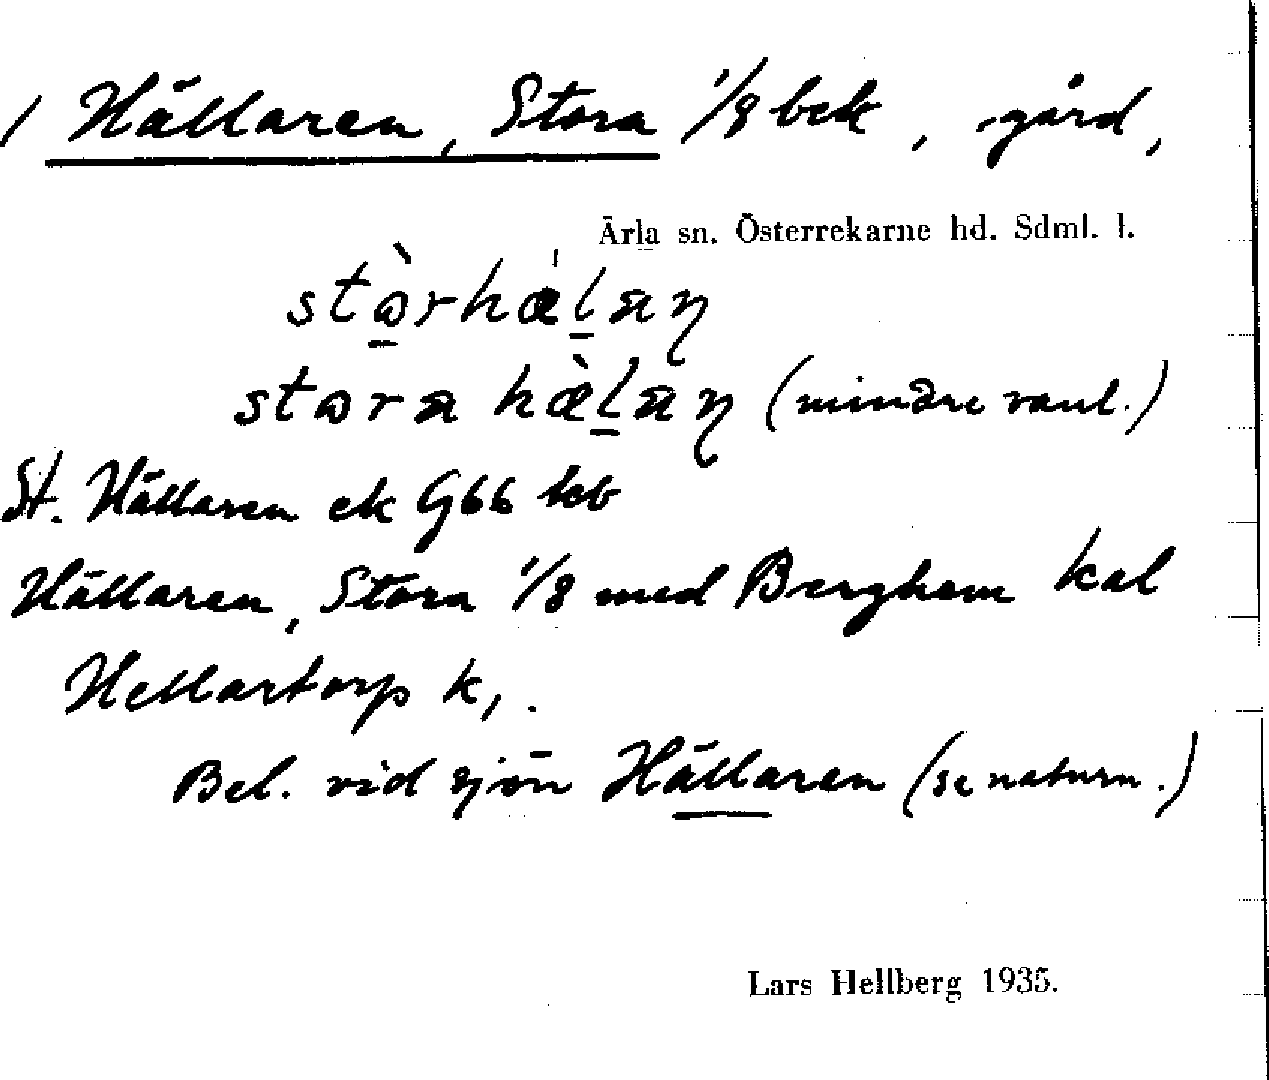 / Hällaren, Stora 1/8 bek, gård,
Ärla sn. Österrekarne hd. Sdml. l.
stɷ̀rhǽlaŋ
stɷra hæ̀laŋ (mindre vanl.)
St. Hällaren ek G66 kb
Hällaren, Stora 1/8 med Berghem kal
Hellartorp k,.
Bel. vid sjön Hällaren (se naturn.)
Lars Hellberg 1935.